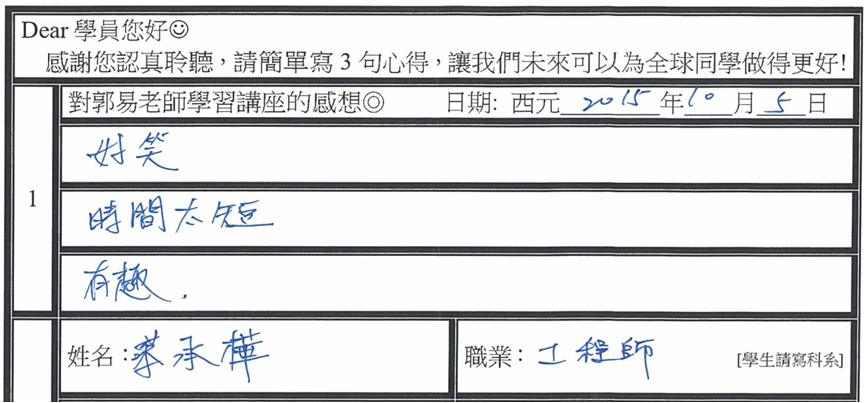 Dear 學員您好☺
感謝您認真聆聽，請簡單寫 3 句心得，讓我們未來可以為全球同學做得更好!
對郭易老師學習講座的感想◎ 日期: 西元 2015 年 10 月 5 日
好笑
1
時間太短
有趣.
姓名：蔡承樺 職業：工程師 [學生請寫科系]